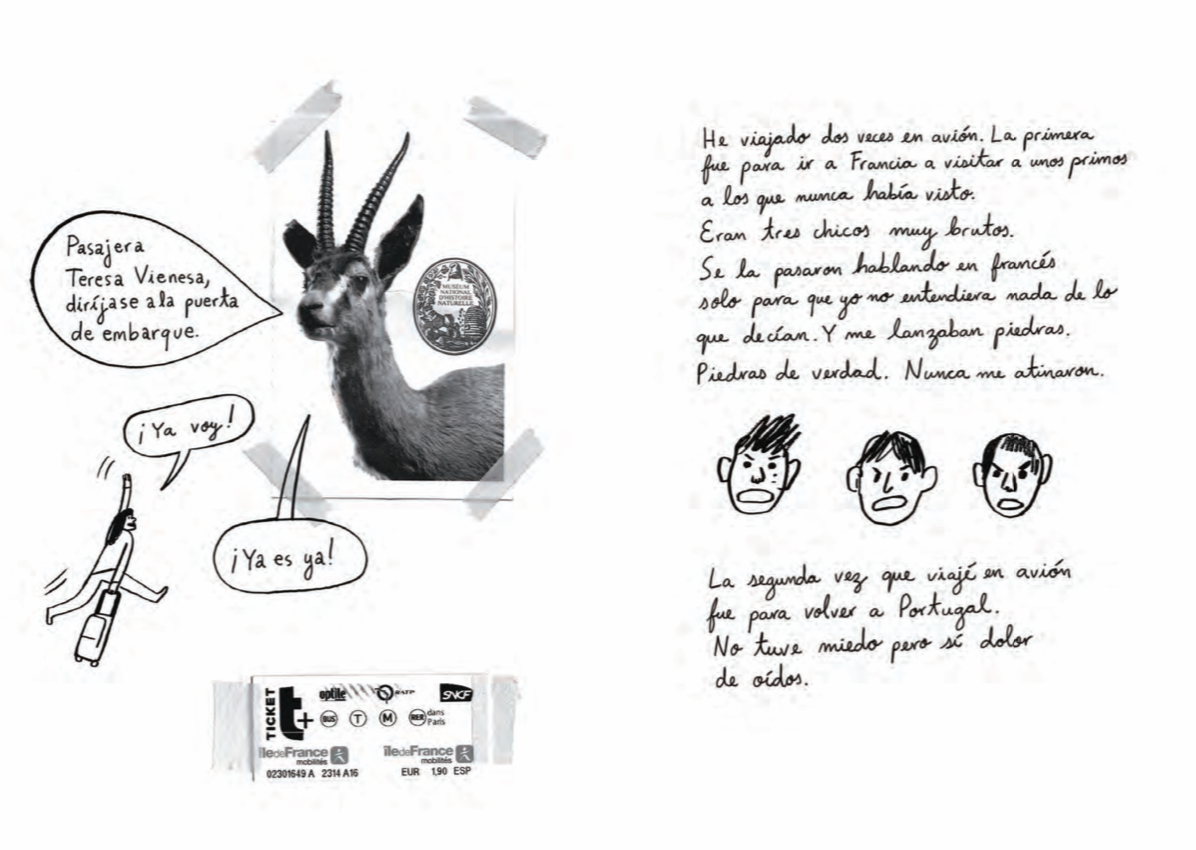 Pasajera
Teresa Vienesa,
diríjase a la puerta
de embarque.
MUSEUM
NATIONAL
D'HISTOIRE
NATURELLE
¡Ya voy!
¡Ya es ya!
TICKET
t+
optile
RATP
SNCF
BUS T M RER dans
Paris
îledeFrance
mobilités
îledeFrance
mobilités
02301649 A 2314 A16
EUR 1,90 ESP
He viajado dos veces en avión. La primera
fue para ir a Francia a visitar a unos primos
a los que nunca había visto.
Eran tres chicos muy brutos.
Se la pasaron hablando en francés
solo para que yo no entendiera nada de lo
que decían. Y me lanzaban piedras.
Piedras de verdad. Nunca me atinaron.
La segunda vez que viajé en avión
fue para volver a Portugal.
No tuve miedo pero sí dolor
de oídos.